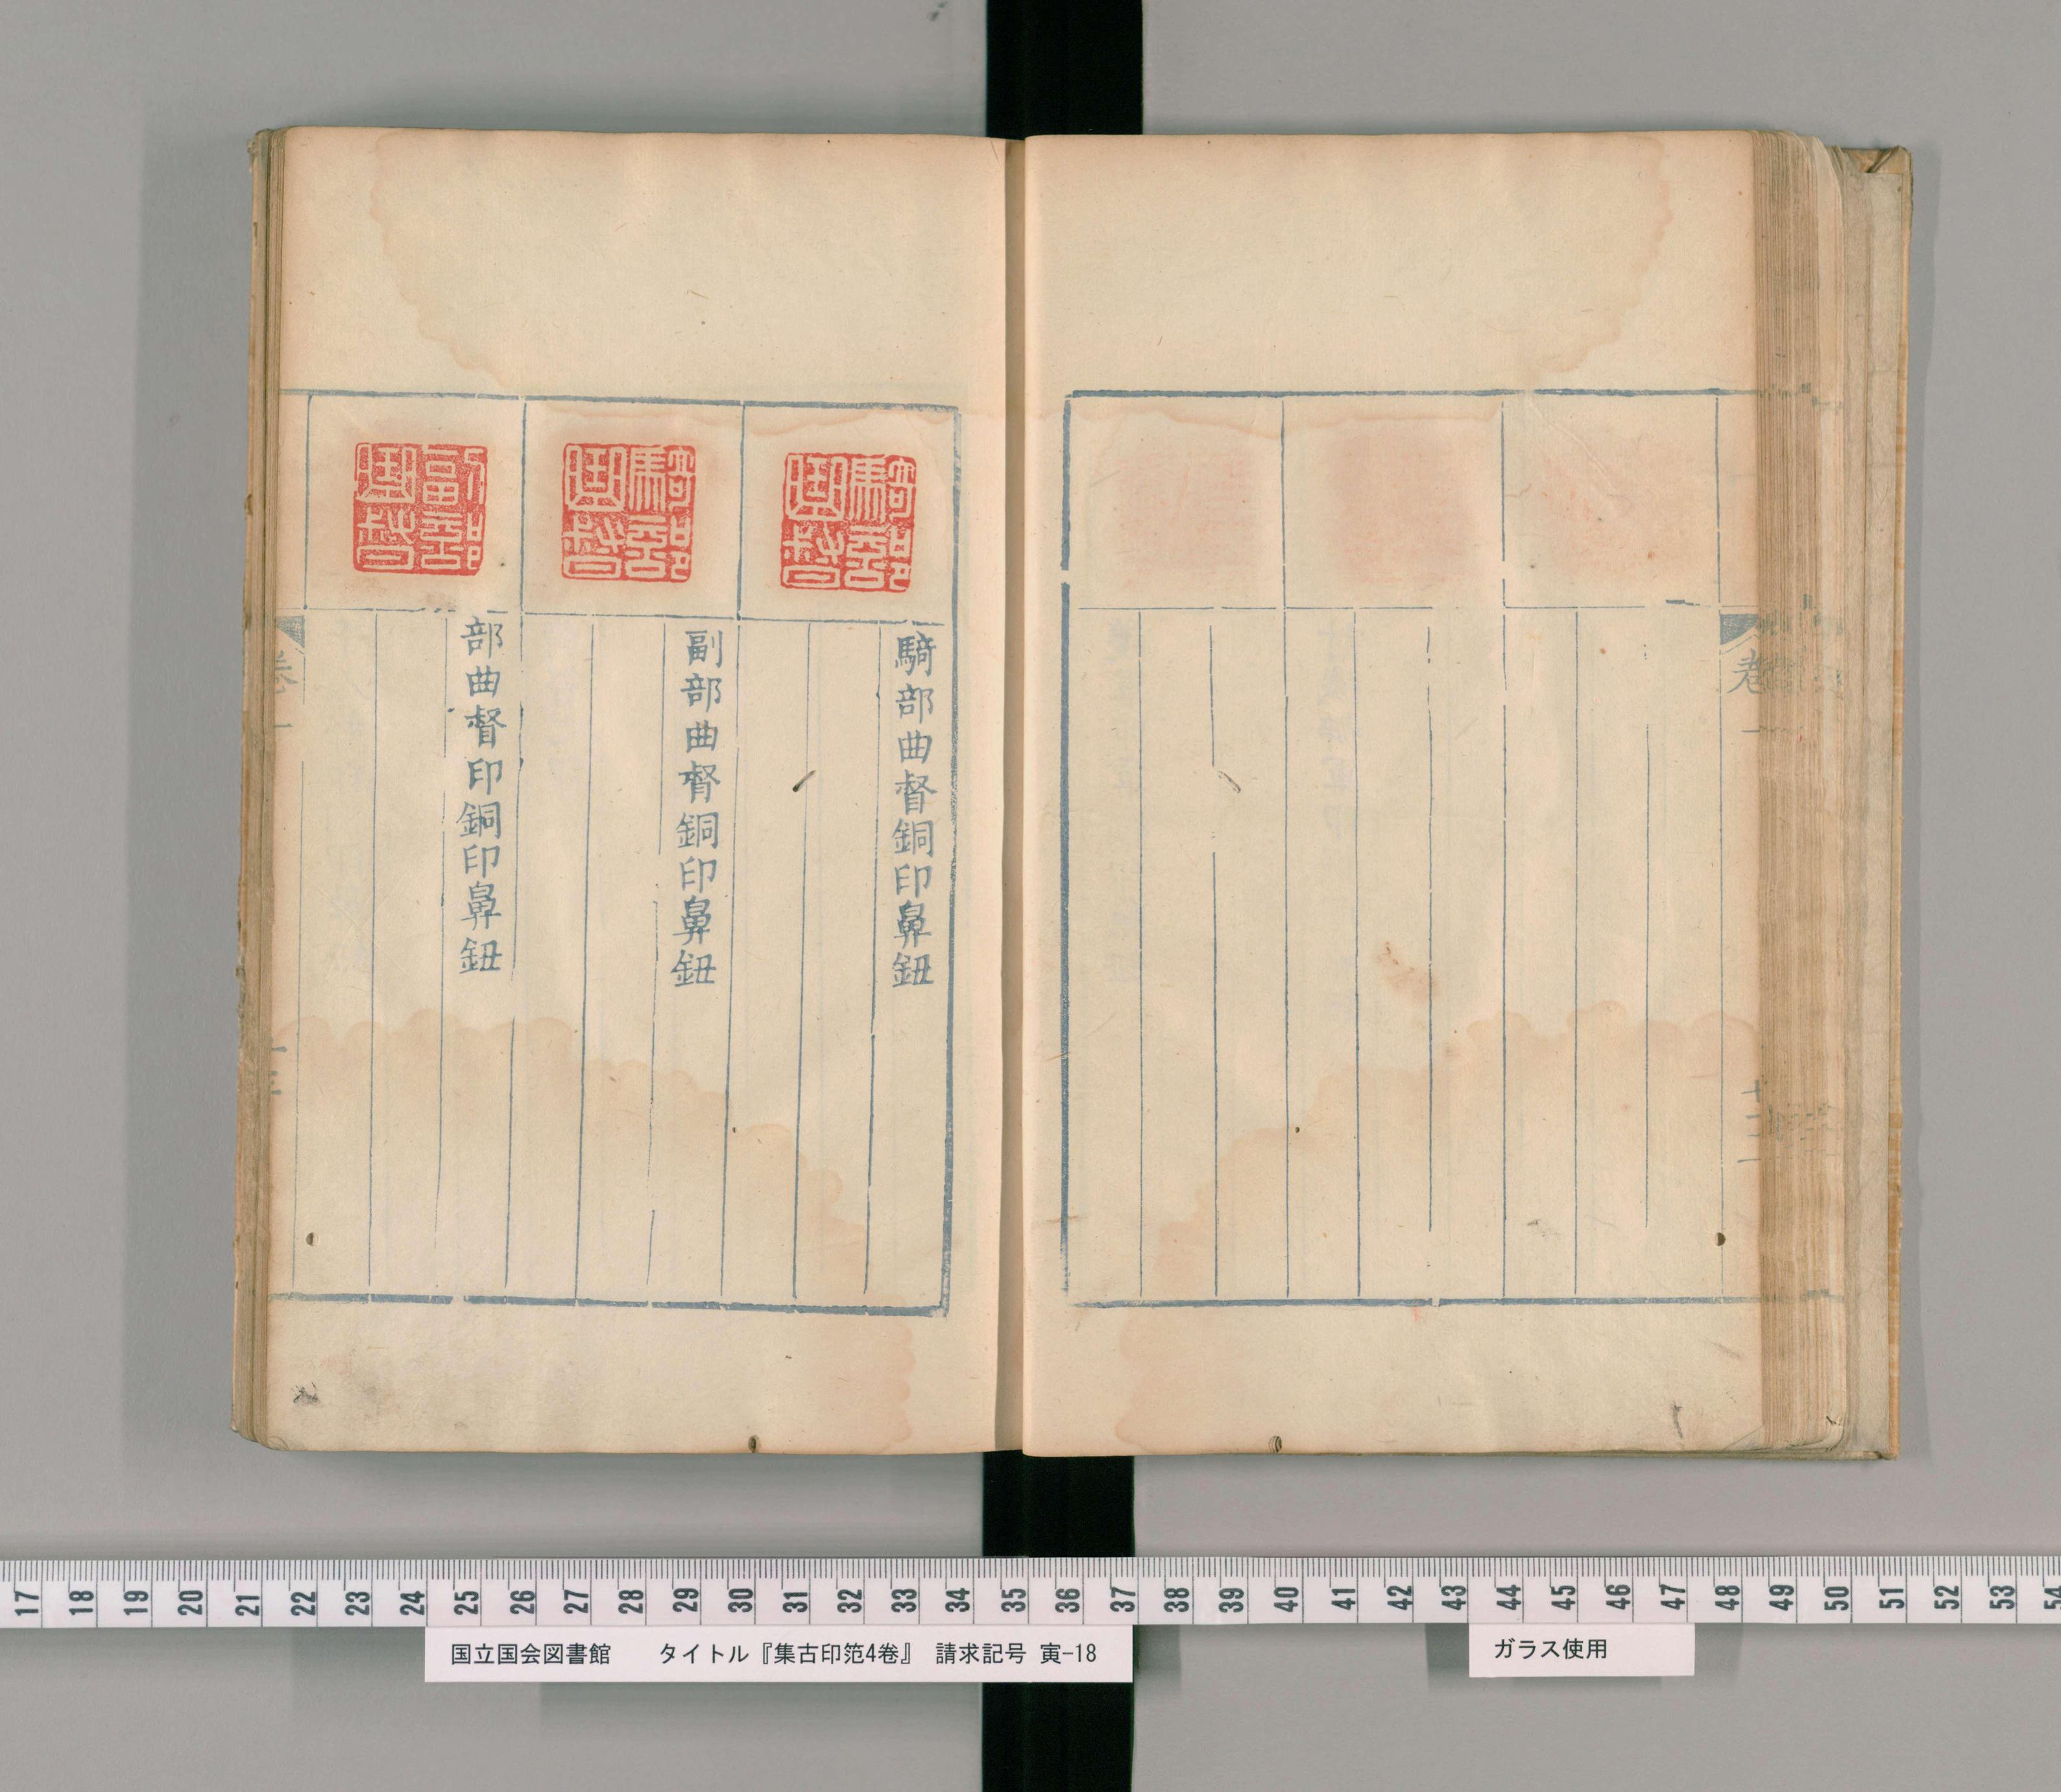 卷一
十二
騎部曲督銅印鼻鈕
副部曲督銅印鼻鈕
部曲督印銅印鼻鈕
卷一
17 18 19 20 21 22 23 24 25 26 27 28 29 30 31 32 33 34 35 36 37 38 39 40 41 42 43 44 45 46 47 48 49 50 51 52 53 54
国立国会図書館 タイトル『集古印笵4巻』 請求記号 寅-18
ガラス使用